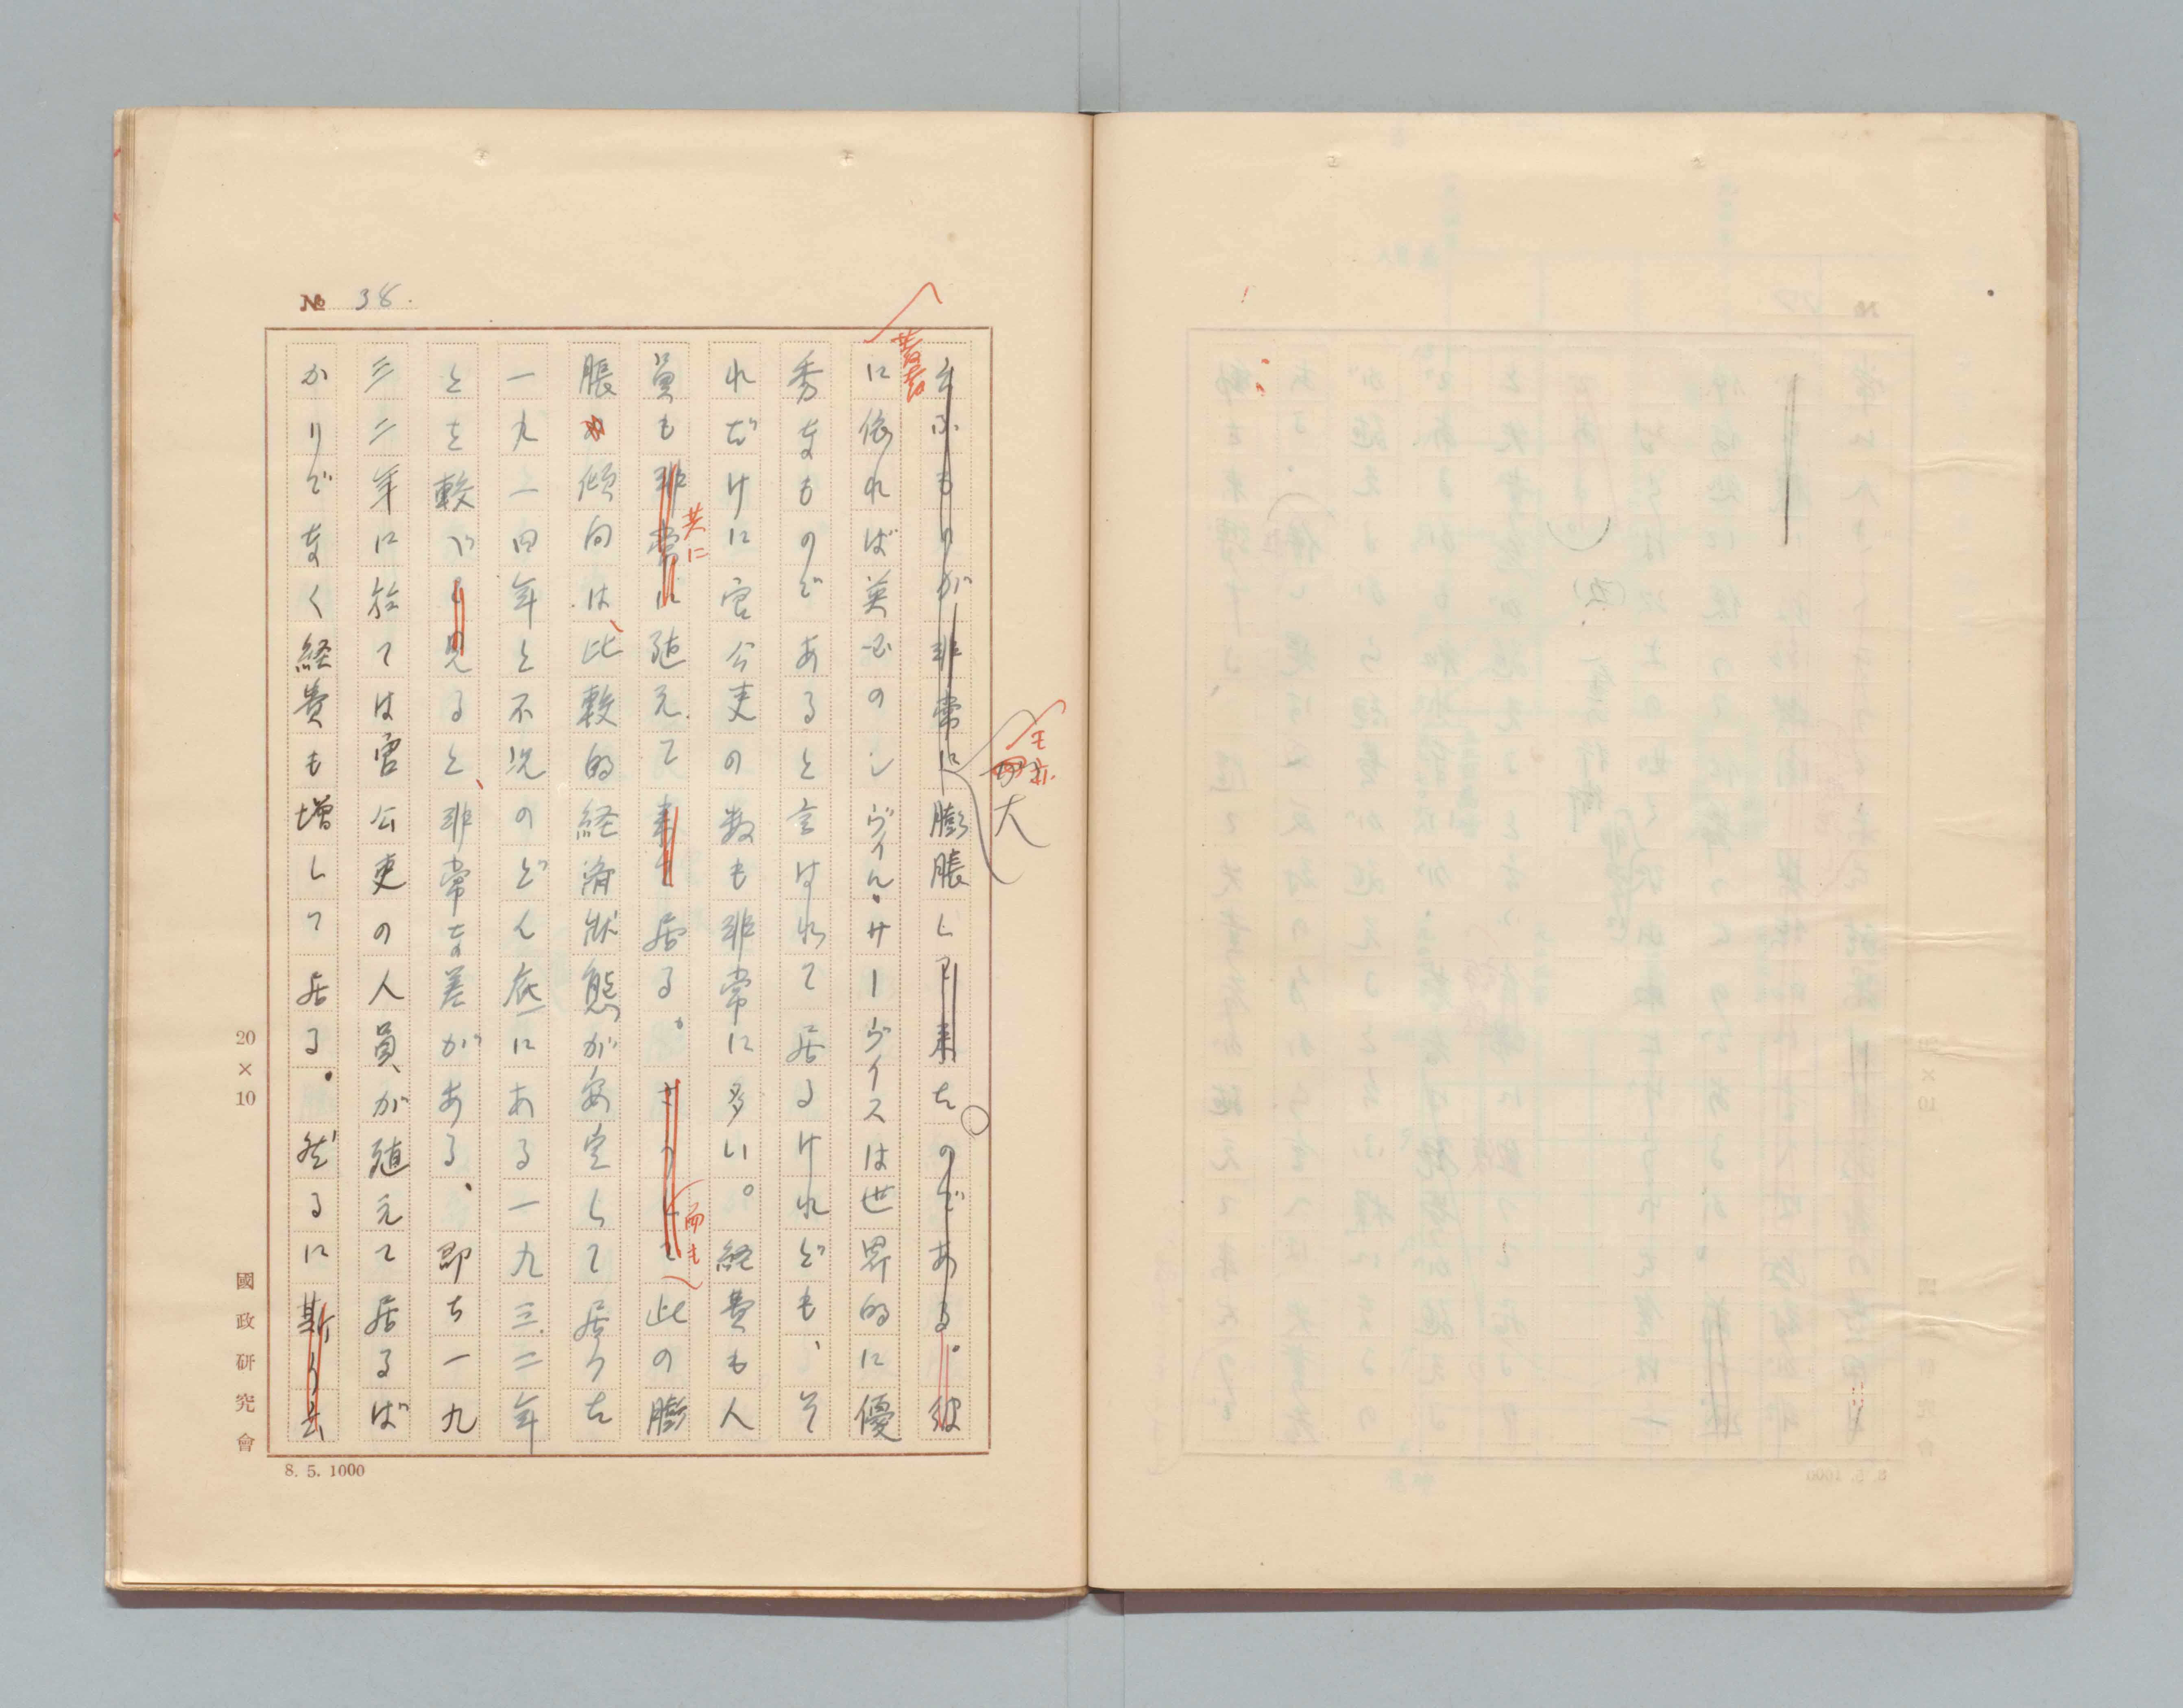 No 38.
云ふものが非常に膨脹し来たのである。彼
に依れば英国のシヴイル・サーヴイスは世界的に優
秀なものであると言はれて居るけれども、そ
れだけに官公吏の数も非常に多い。経費も人
員も非常に殖えて来て居る。さうして此の膨
共に
而も
脹の傾向は、比較的経済状態が安定して居つた
一九一四年と不況のどん底にある一九三二年
とを較べて見ると、非常な差がある、即ち一九
三二年に於ては官公吏の人員が殖えて居るば
かりでなく経費も増して居る。然るに斯う云
大
20×10
國政研究會
8. 5. 1000